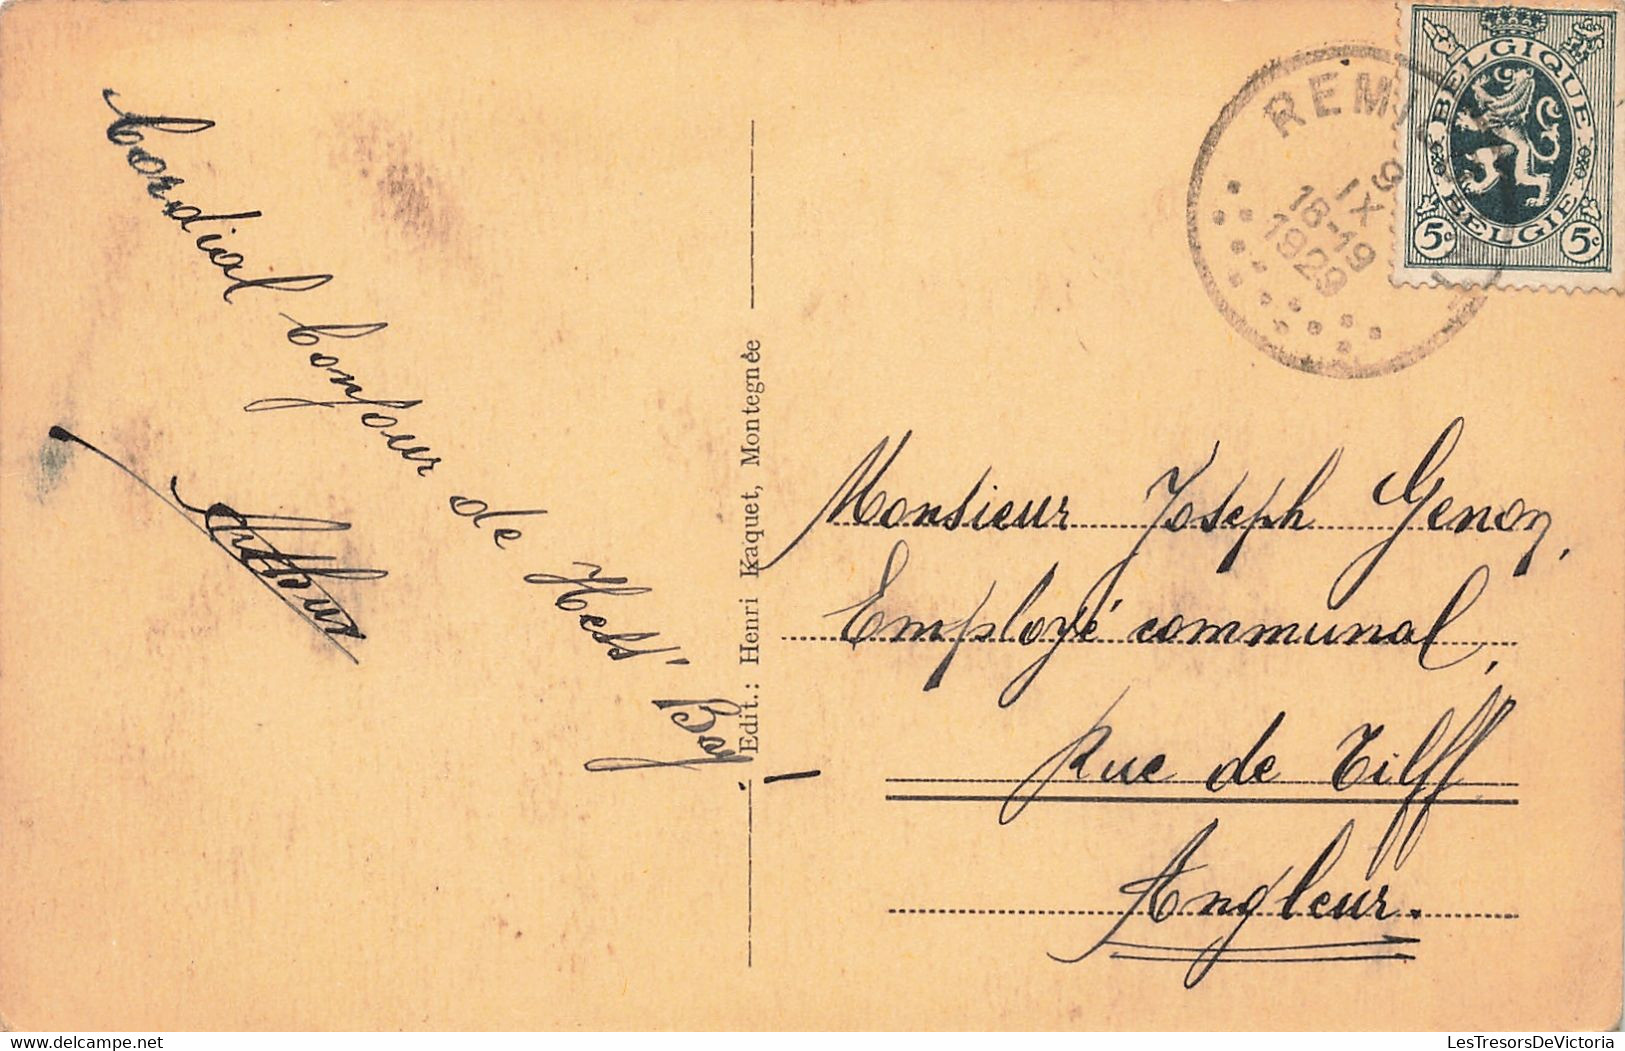 Cordial bonjour de
Arthur
Edit.: Henri Kaquet, Montegnée
REM
9
IX
18-19
1929
BELGIQUE
BELGIE
5c 5c
Monsieur Joseph Genon,
Employé communal,
Rue de Tilff
Angleur.
delcampe.net
LesTresorsDeVictoria